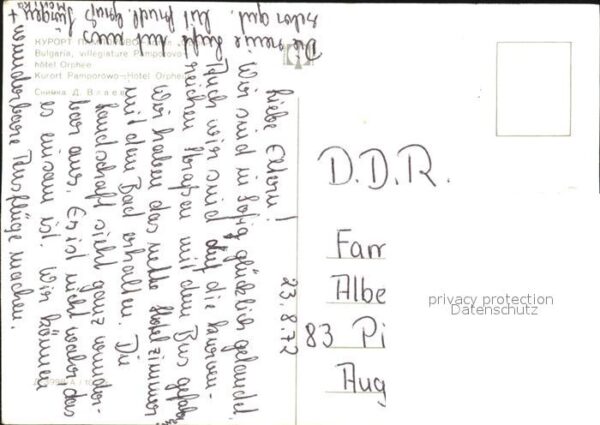 КУРОРТ
Bulgaria, villegiature Pamporovo
hôtel Orphee
Kurort Pamporowo–Hotel Orphe
Снимка Д. В
23.8.72
Liebe Eltern!
Wir sind in Sofia glücklich gelandet.
Auch wir sind auf die kurven-
reichen Straßen mit dem Bus gefahren.
Wir haben das nette Hotelzimmer
mit dem Bad erhalten. Die
Landschaft sieht ganz wunder-
bar aus. Es ist nicht wahr das
es einsam ist. Wir können
wunderbare Ausflüge machen.
Die reine Luft tut uns
schon gut. Mit freudl. Gruß Jürgen +
D.D.R.
Farr
Albe
83 Pi
Aug
privacy protection
Datenschutz